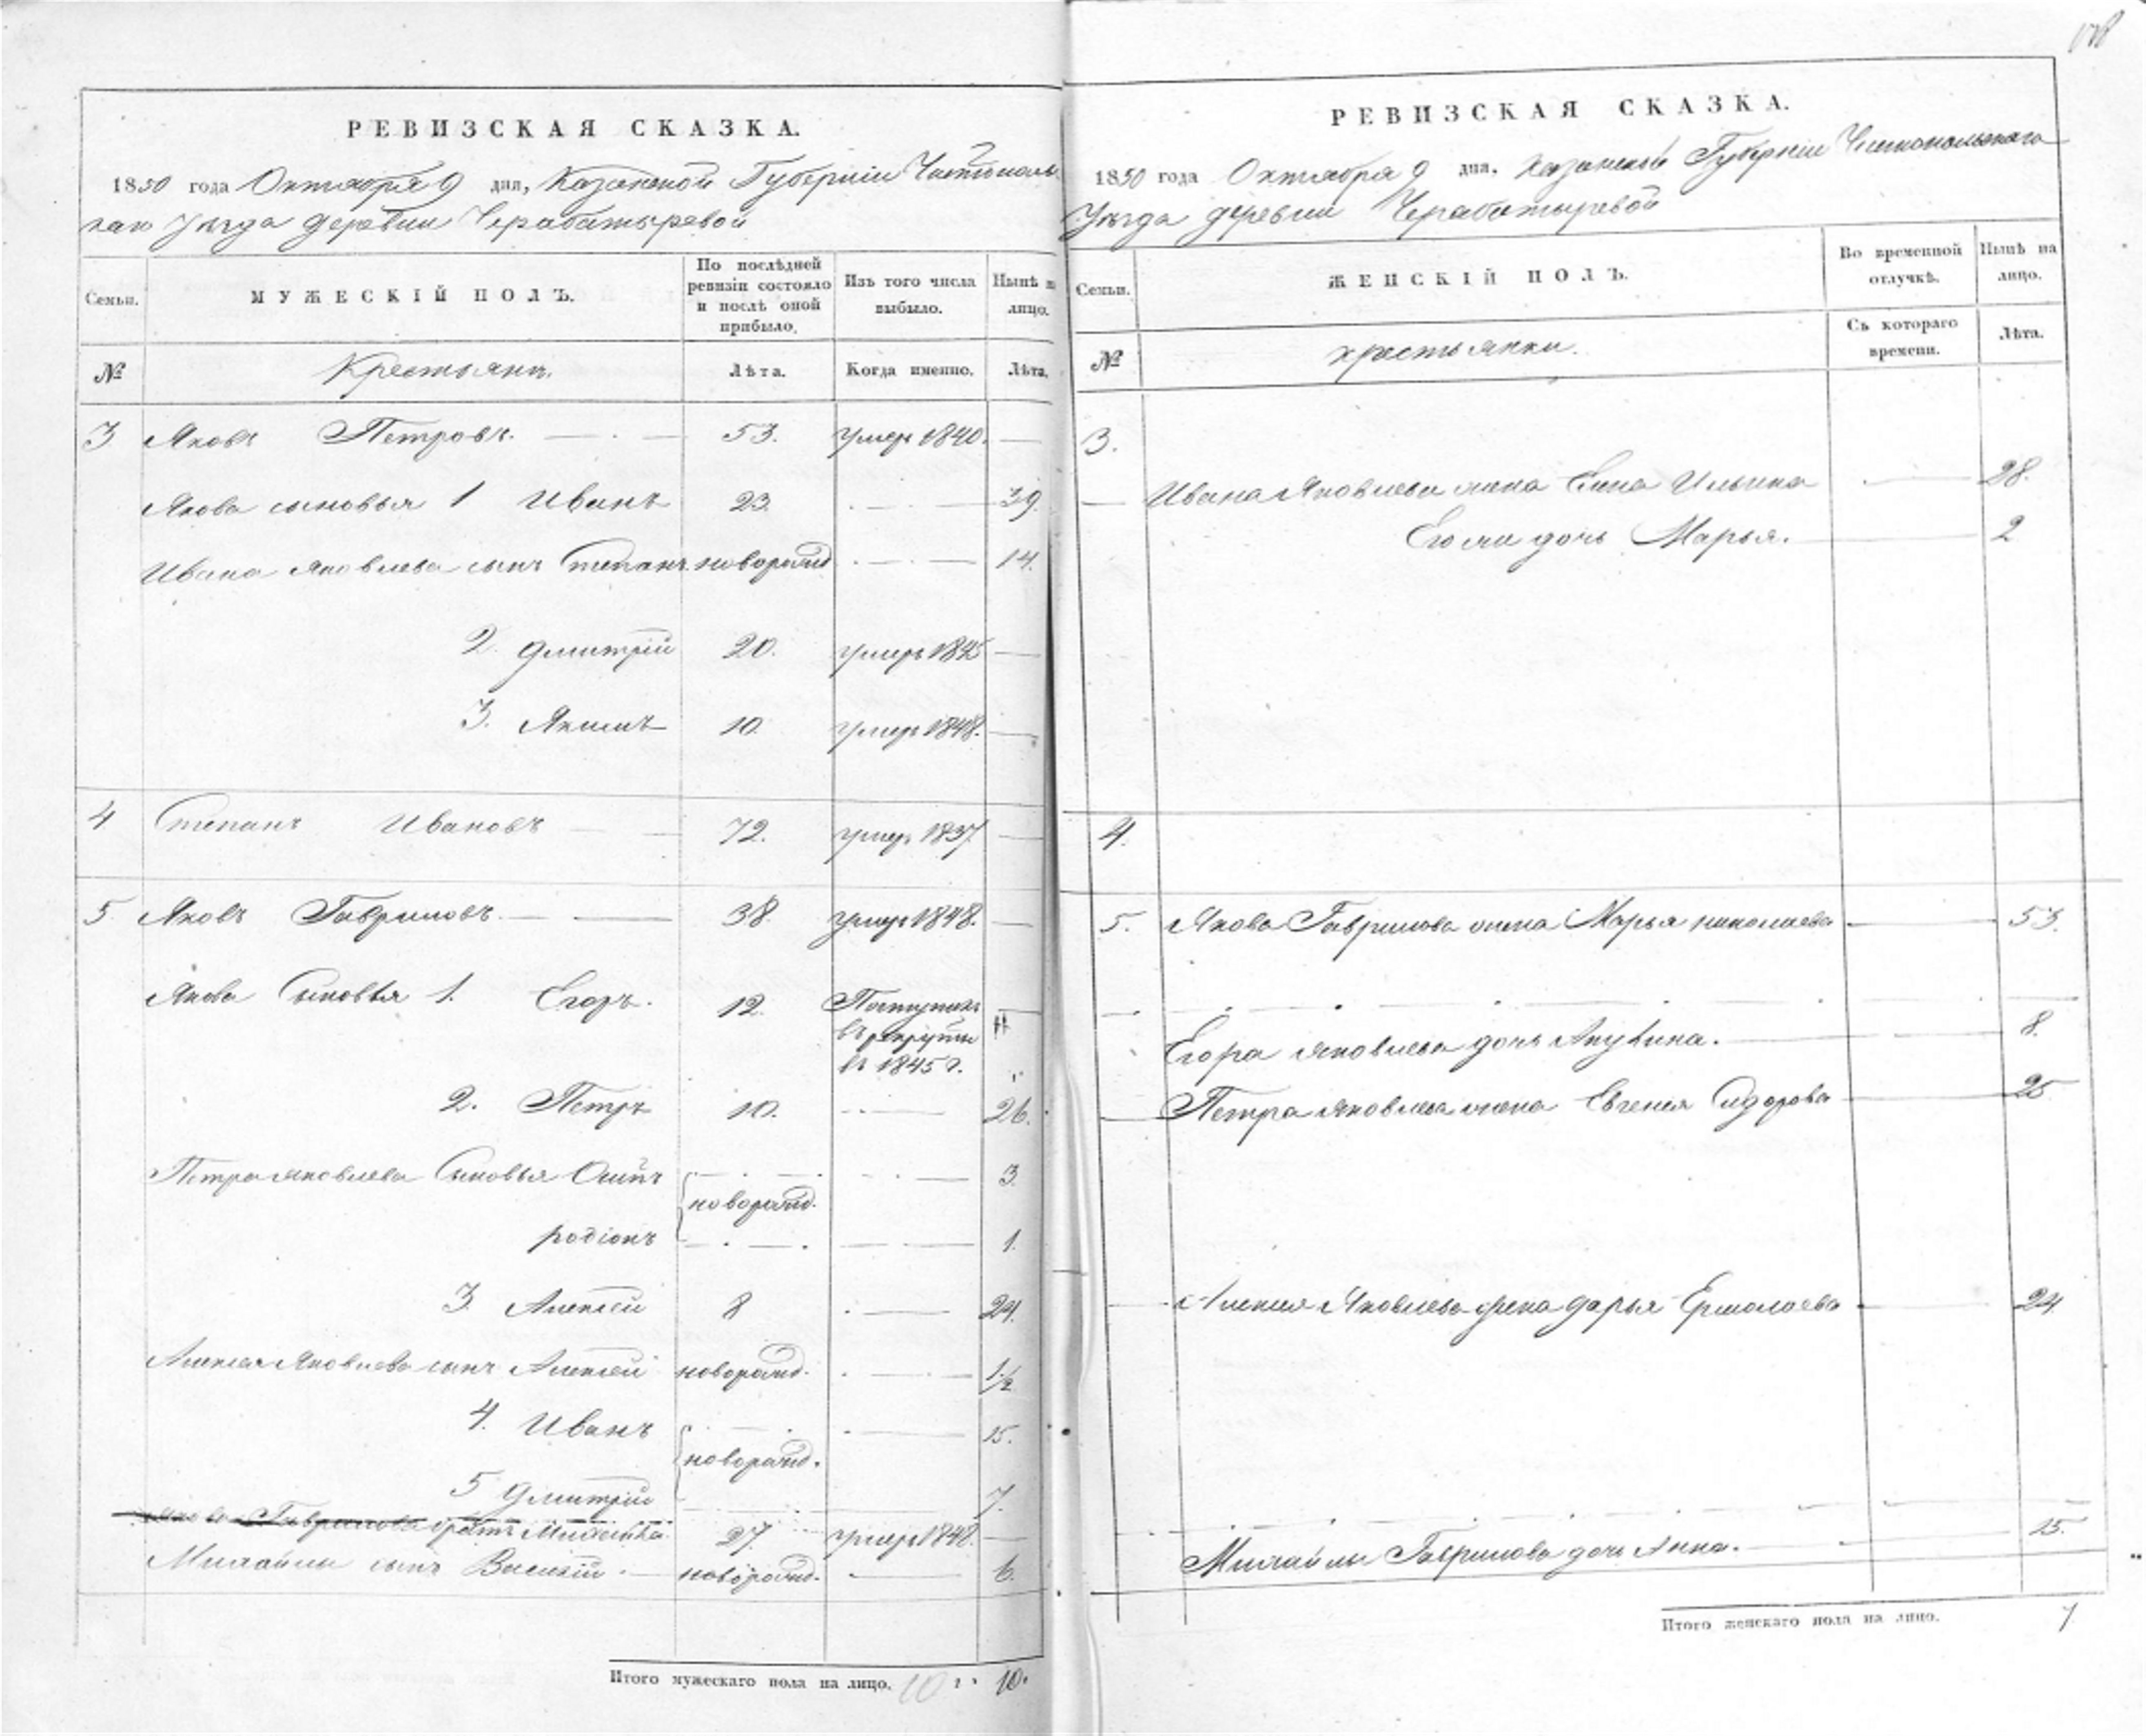 РЕВИЗСКАЯ СКАЗКА.
1850 года Октября 9 дня, Казанской Губернiи Чистополь-
скаго Уѣзда деревни Черабатыревой
Семьи.
МУЖЕСКIЙ ПОЛЪ.
По послѣдней ревизiи состояло и послѣ оной прибыло.
Изъ того числа выбыло.
Нынѣ на лицо.
№
Крестьянъ.
Лѣта.
Когда именно.
Лѣта.
3 Яковъ Петровъ. 53. умеръ 1840.
Якова сыновья 1 Иванъ 23. 39.
Ивана Яковлева сынъ Степанъ новорожд 14.
2. Дмитрiй 20. умеръ
3. Якимъ 10. умеръ 1848.
4 Степанъ Ивановъ 72. умеръ 1837.
5 Яковъ Гавриловъ. 38. умеръ 1848.
Якова Сыновья 1. Егоръ. 12. Поступилъ
въ рекруты
въ 1845 г.
2. Петръ 10. 26.
Петра Яковлева Сыновья Осипъ 3.
новорожд.
родiонъ 1.
3. Алексѣй 8 24.
Алексея Яковлева сынъ Алексѣй новорожд. 1½
4. Иванъ 15.
новорожд.
5 Дмитрiй 7.
Якова Гаврилова братъ Михайла 27. умеръ 1848.
Михайлы сынъ Василiй. новорожд. 6.
Итого мужескаго пола на лицо. 10 10.
РЕВИЗСКАЯ СКАЗКА.
1850 года Октября 9 дня, Казанской Губернiи Чистопольскаго
Уѣзда деревни Черабатыревой
Семьи.
ЖЕНСКIЙ ПОЛЪ.
Во временной отлучкѣ.
Нынѣ на лицо.
№
крестьянки.
Съ котораго времени.
Лѣта.
3.
Ивана Яковлева жена Елена Ильина 28.
Его же дочь Марья. 2
4.
5. Якова Гаврилова жена Марья николаева 53.
Егора Яковлева дочь Акулина. 8.
Петра Яковлева жена Евгенiя Сидорова 25
Алексея Яковлева жена Дарья Ермолаева 24.
Михайлы Гаврилова дочь Анна. 15.
Итого женскаго пола на лицо. 7